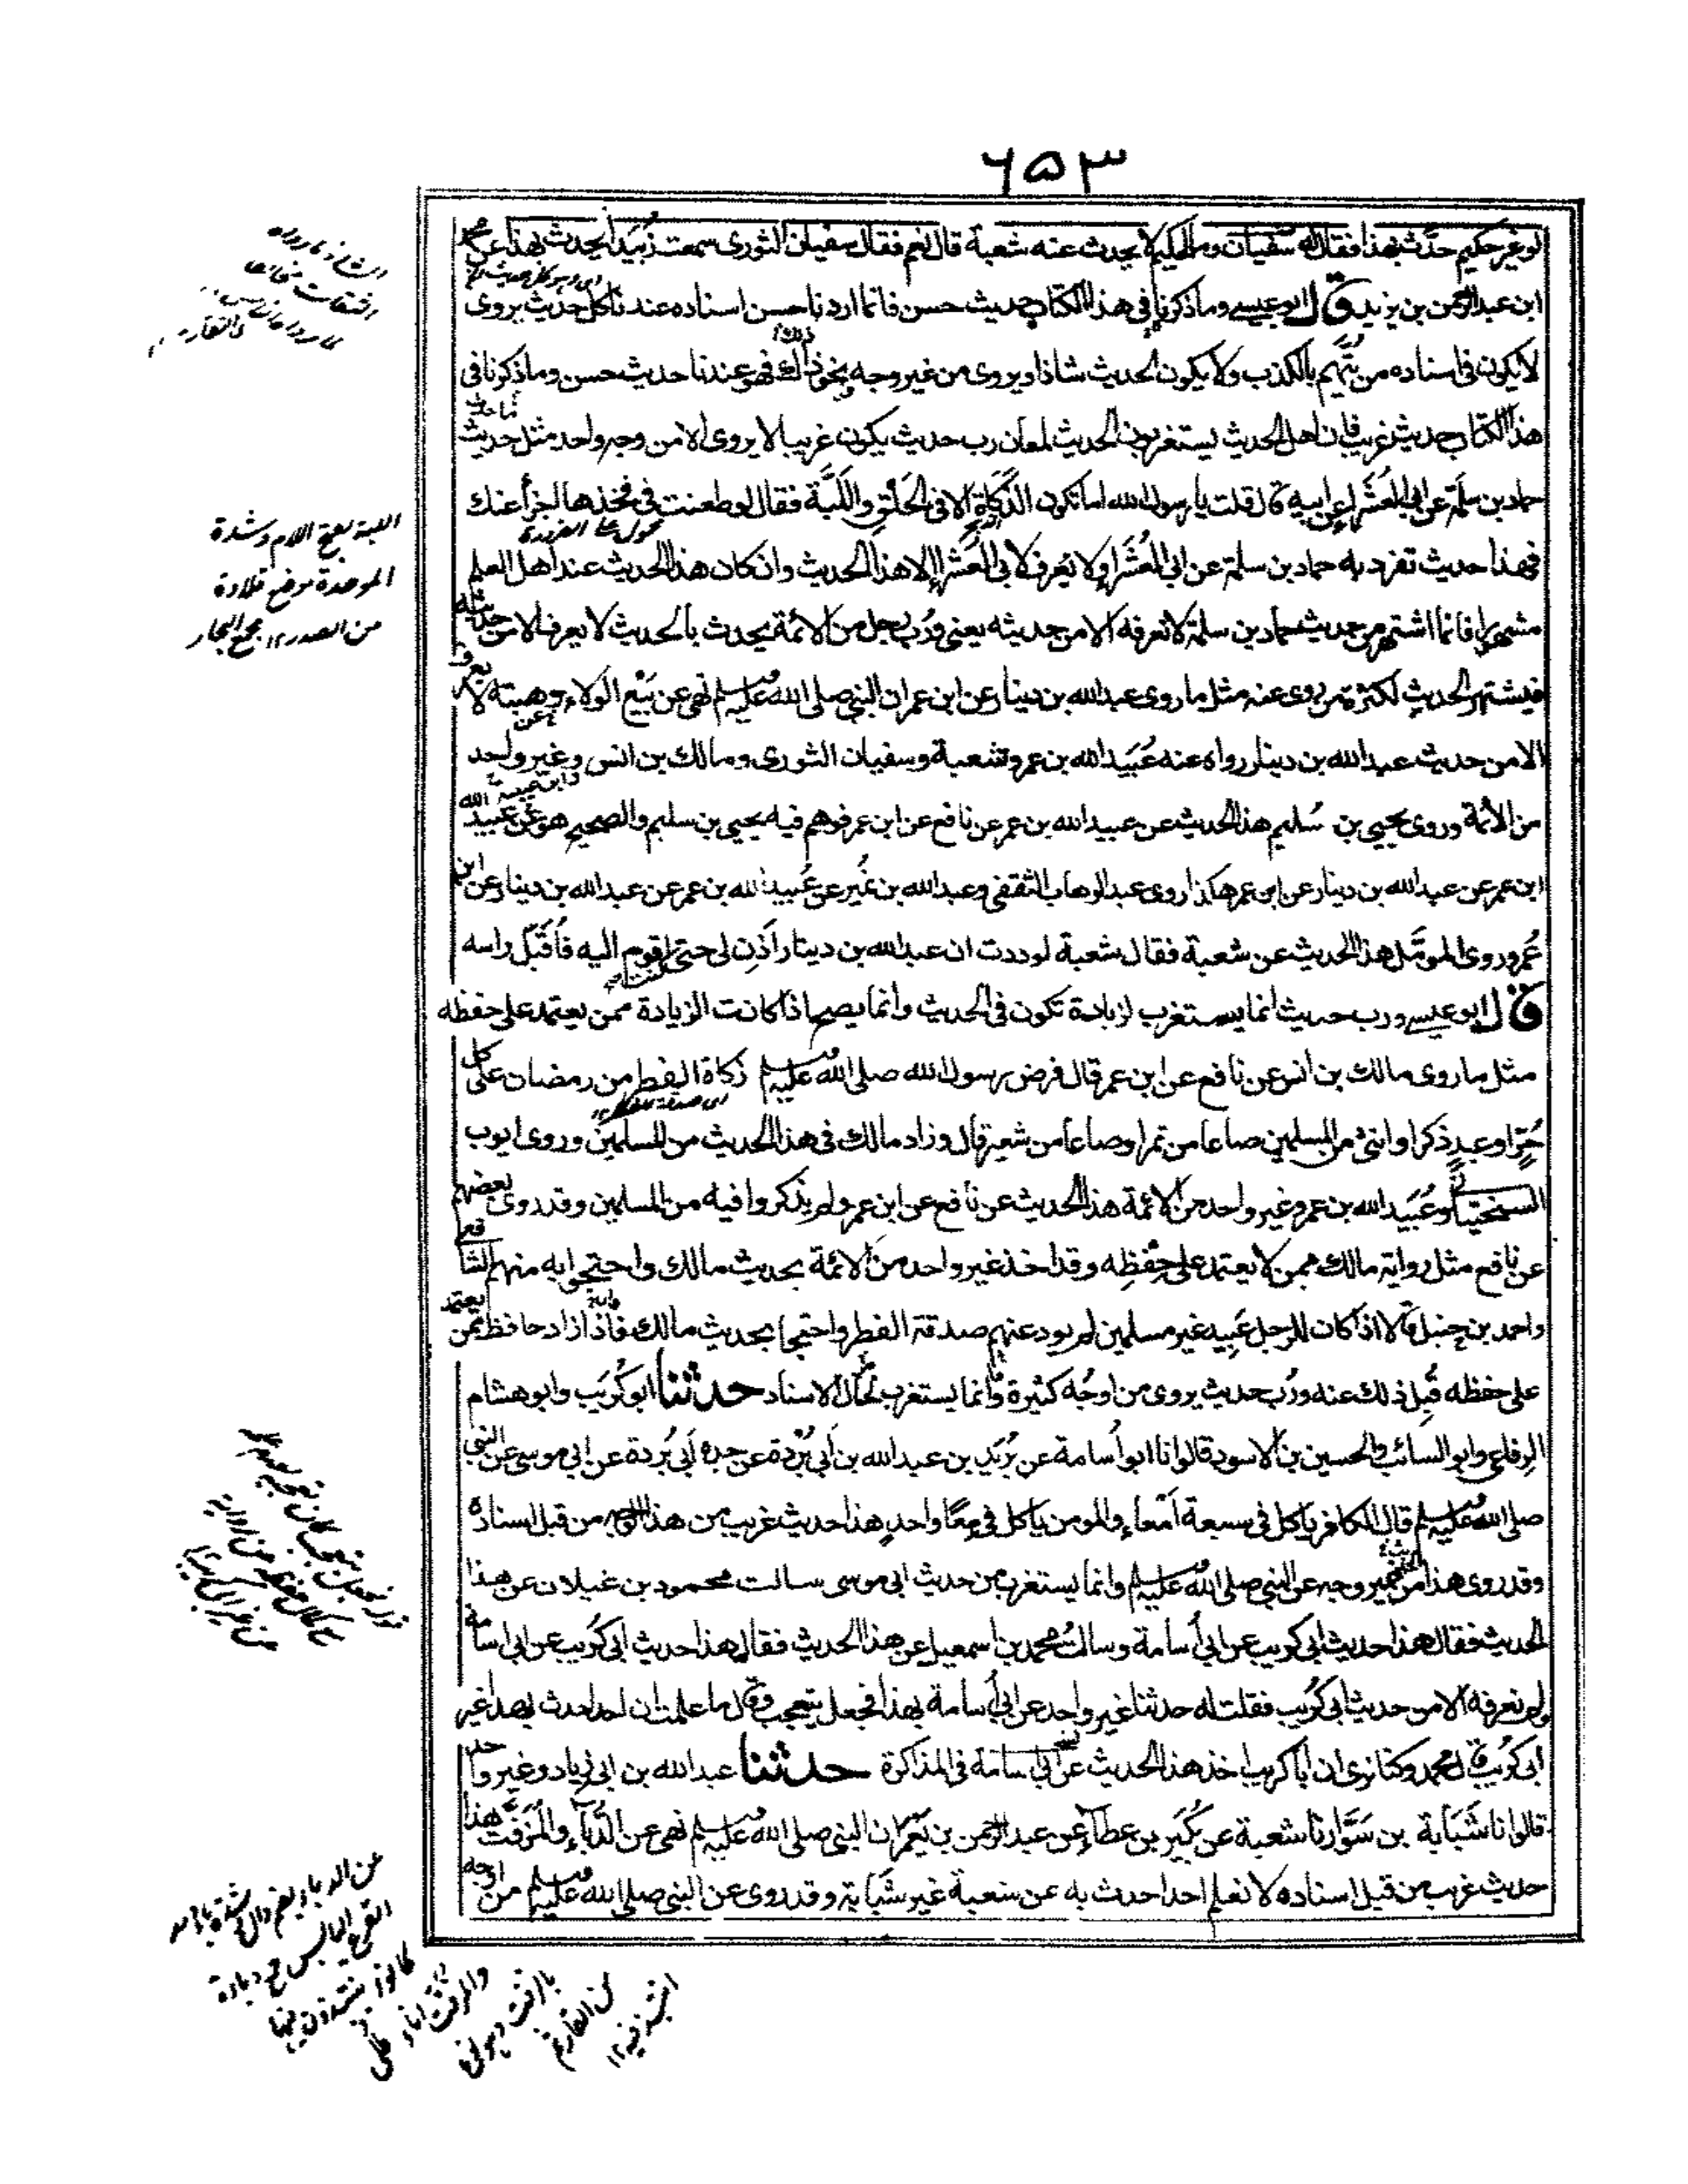 ٦٥٣
لو غير حكيم حدّث بهذا فقال له سفيان وما لحكيم لا يحدث عنه شعبة قال نعم فقال سفيان الثورى سمعت زُبَيدا يحدث بهذا عن محمد
ابن عبد الرحمن بن يزيد قال ابو عيسى وما ذكرنا فى هذا الكتاب حديث حسن فانما اردنا حسن اسناده عندنا كل حديث يروى
لا يكون فى اسناده من يُتّهم بالكذب ولا يكون الحديث شاذا ويروى من غير وجه نحو ذلك فهو عندنا حديث حسن وما ذكرنا فى
هذا الكتاب حديث غريب فان اهل الحديث يستغربون الحديث لمعان رب حديث يكون غريبا لا يروى الا من وجه واحد مثل حديث
حماد بن سلمة عن ابى العُشَراء عن ابيه قال قلت يا رسول الله اما تكون الذكاة الا فى الحَلْقِ واللَّبَّة فقال لو طعنت فى فخذها اجزأ عنك
فهذا حديث تفرد به حماد بن سلمة عن ابى العُشَراء ولا يُعرف لابى العُشَراء الا هذا الحديث وان كان هذا الحديث عند اهل العلم
مشهورا فانما اشتهر من حديث حماد بن سلمة لا نعرفه الا من حديثه يعنى ورُبّ رجل من الائمة يحدث بالحديث لا يعرف الا من حديثه
فيشتهر الحديث لكثرة من روى عنه مثل ما روى عبد الله بن دينار عن ابن عمر ان النبى صلى الله عليه وسلم نهى عن بَيْع الولاء وهبته لا يعرف
الا من حديث عبد الله بن دينار رواه عنه عُبَيد الله بن عمر وشعبة وسفيان الثورى ومالك بن انس وغير واحد
من الائمة وروى يحيى بن سُليم هذا الحديث عن عبيد الله بن عمر عن نافع عن ابن عمر فوهم فيه يحيى بن سليم والصحيح هو عن عبيد الله
ابن عمر عن عبد الله بن دينار عن ابن عمر هكذا روى عبد الوهاب الثقفى وعبد الله بن نُمَير عن عُبيد الله بن عمر عن عبد الله بن دينار عن ابن
عُمر وروى المؤمّل هذا الحديث عن شعبة فقال شعبة لوددت ان عبد الله بن دينار اَذِن لى حتى اقوم اليه فاُقَبّل راسه
قال ابو عيسى ورب حديث انما يستغرب لزيادة تكون فى الحديث وانما يصح اذا كانت الزيادة ممن يعتمد على حفظه
مثل ما روى مالك بن انس عن نافع عن ابن عمر قال فرض رسول الله صلى الله عليه وسلم زكاة الفطر من رمضان على كل
حُرّ او عبد ذكر او انثى من المسلمين صاعا من تمر او صاعا من شعير قال وزاد مالك فى هذا الحديث من المسلمين وروى ايوب
السختيانى وعُبَيد الله بن عمر وغير واحد من الائمة هذا الحديث عن نافع عن ابن عمر ولم يذكروا فيه من المسلمين وقد روى بعضهم
عن نافع مثل رواية مالك ممن لا يعتمد على حِفظِه وقد اخذ غير واحد من الائمة بحديث مالك واحتجوا به منهم الشافعى
واحمد بن حنبل قالا اذا كان للرجل عَبيد غير مسلمين لم يود عنهم صدقة الفطر واحتجا بحديث مالك فاذا زاد حافظ ممن يعتمد
على حفظه قُبِل ذلك عنه ورُب حديث يروى من اوجُه كثيرة وانما يستغرب لحال الاسناد حدثنا ابو كُرَيب وابو هشام
الرفاعى وابو السائب والحسين بن الاسود قالوا نا ابو اُسامة عن بُرَيد بن عبد الله بن اَبى بُرْدة عن جده اَبى بُردة عن ابى موسى عن النبى
صلى الله عليه وسلم قال الكافر ياكل فى سبعة اَمْعاء والمومن ياكل فى مِعًا واحد هذا حديث غريب من هذا الوجه من قبل اسناده
وقد روى هذا من غير وجه عن النبى صلى الله عليه وسلم وانما يستغرب من حديث ابى موسى سالت محمود بن غيلان عن هذا
الحديث فقال هذا حديث ابى كريب عن ابى اُسامة وسالتُ محمد بن اسمعيل عن هذا الحديث فقال هذا حديث ابى كُرَيب عن ابى اسامة
ولم نعرفه الا من حديث ابى كُرَيب فقلت له حدثنا غير واحد عن ابى اُسامة بهذا فجعل يتعجب وقال ما علمت ان احدا حدث بهذا غير
ابى كُرَيب قال محمد وكنا نرى ان ابا كريب اخذ هذا الحديث عن ابى اسامة فى المذاكرة حدثنا عبد الله بن ابى زياد وغير واحد
قالوا نا شَبَابة بن سَوَّار نا شعبة عن بُكَير بن عطاء عن عبد الرحمن بن يَعْمَر ان النبى صلى الله عليه وسلم نهى عن الدُّبَّاء والمُزَفَّت هذا
حديث غريب من قبل اسناده لا نعلم احدا حدث به عن شعبة غير شبابة وقد روى عن النبى صلى الله عليه وسلم من اوجه
اللبة بفتح اللام وشدة
الموحدة موضع قلادة
من الصدر ١٢ مجمع البحار